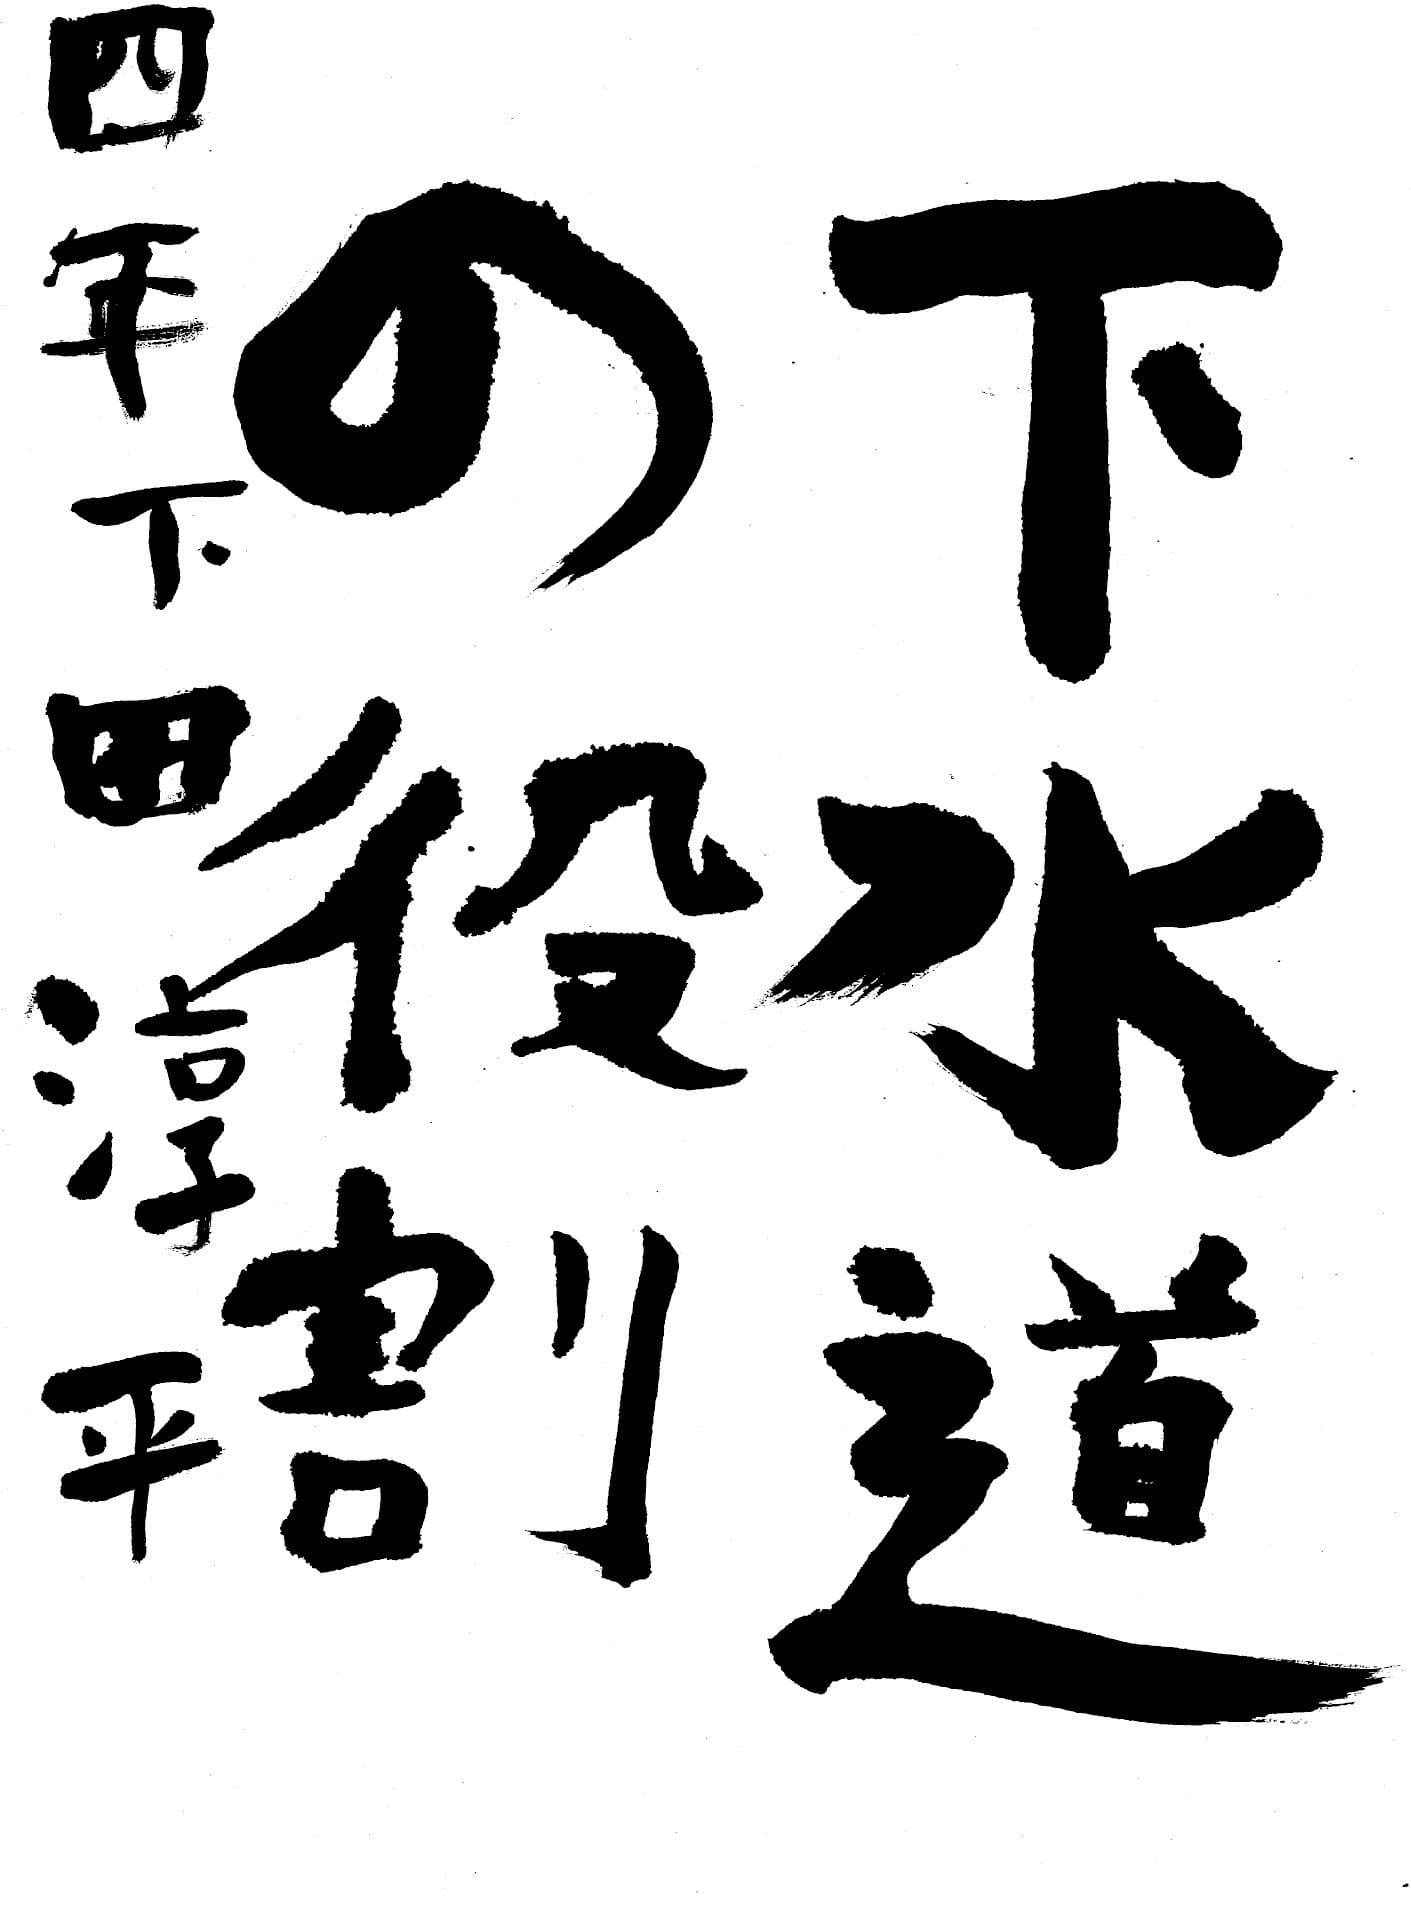 下水道
の役割
四年下田淳平